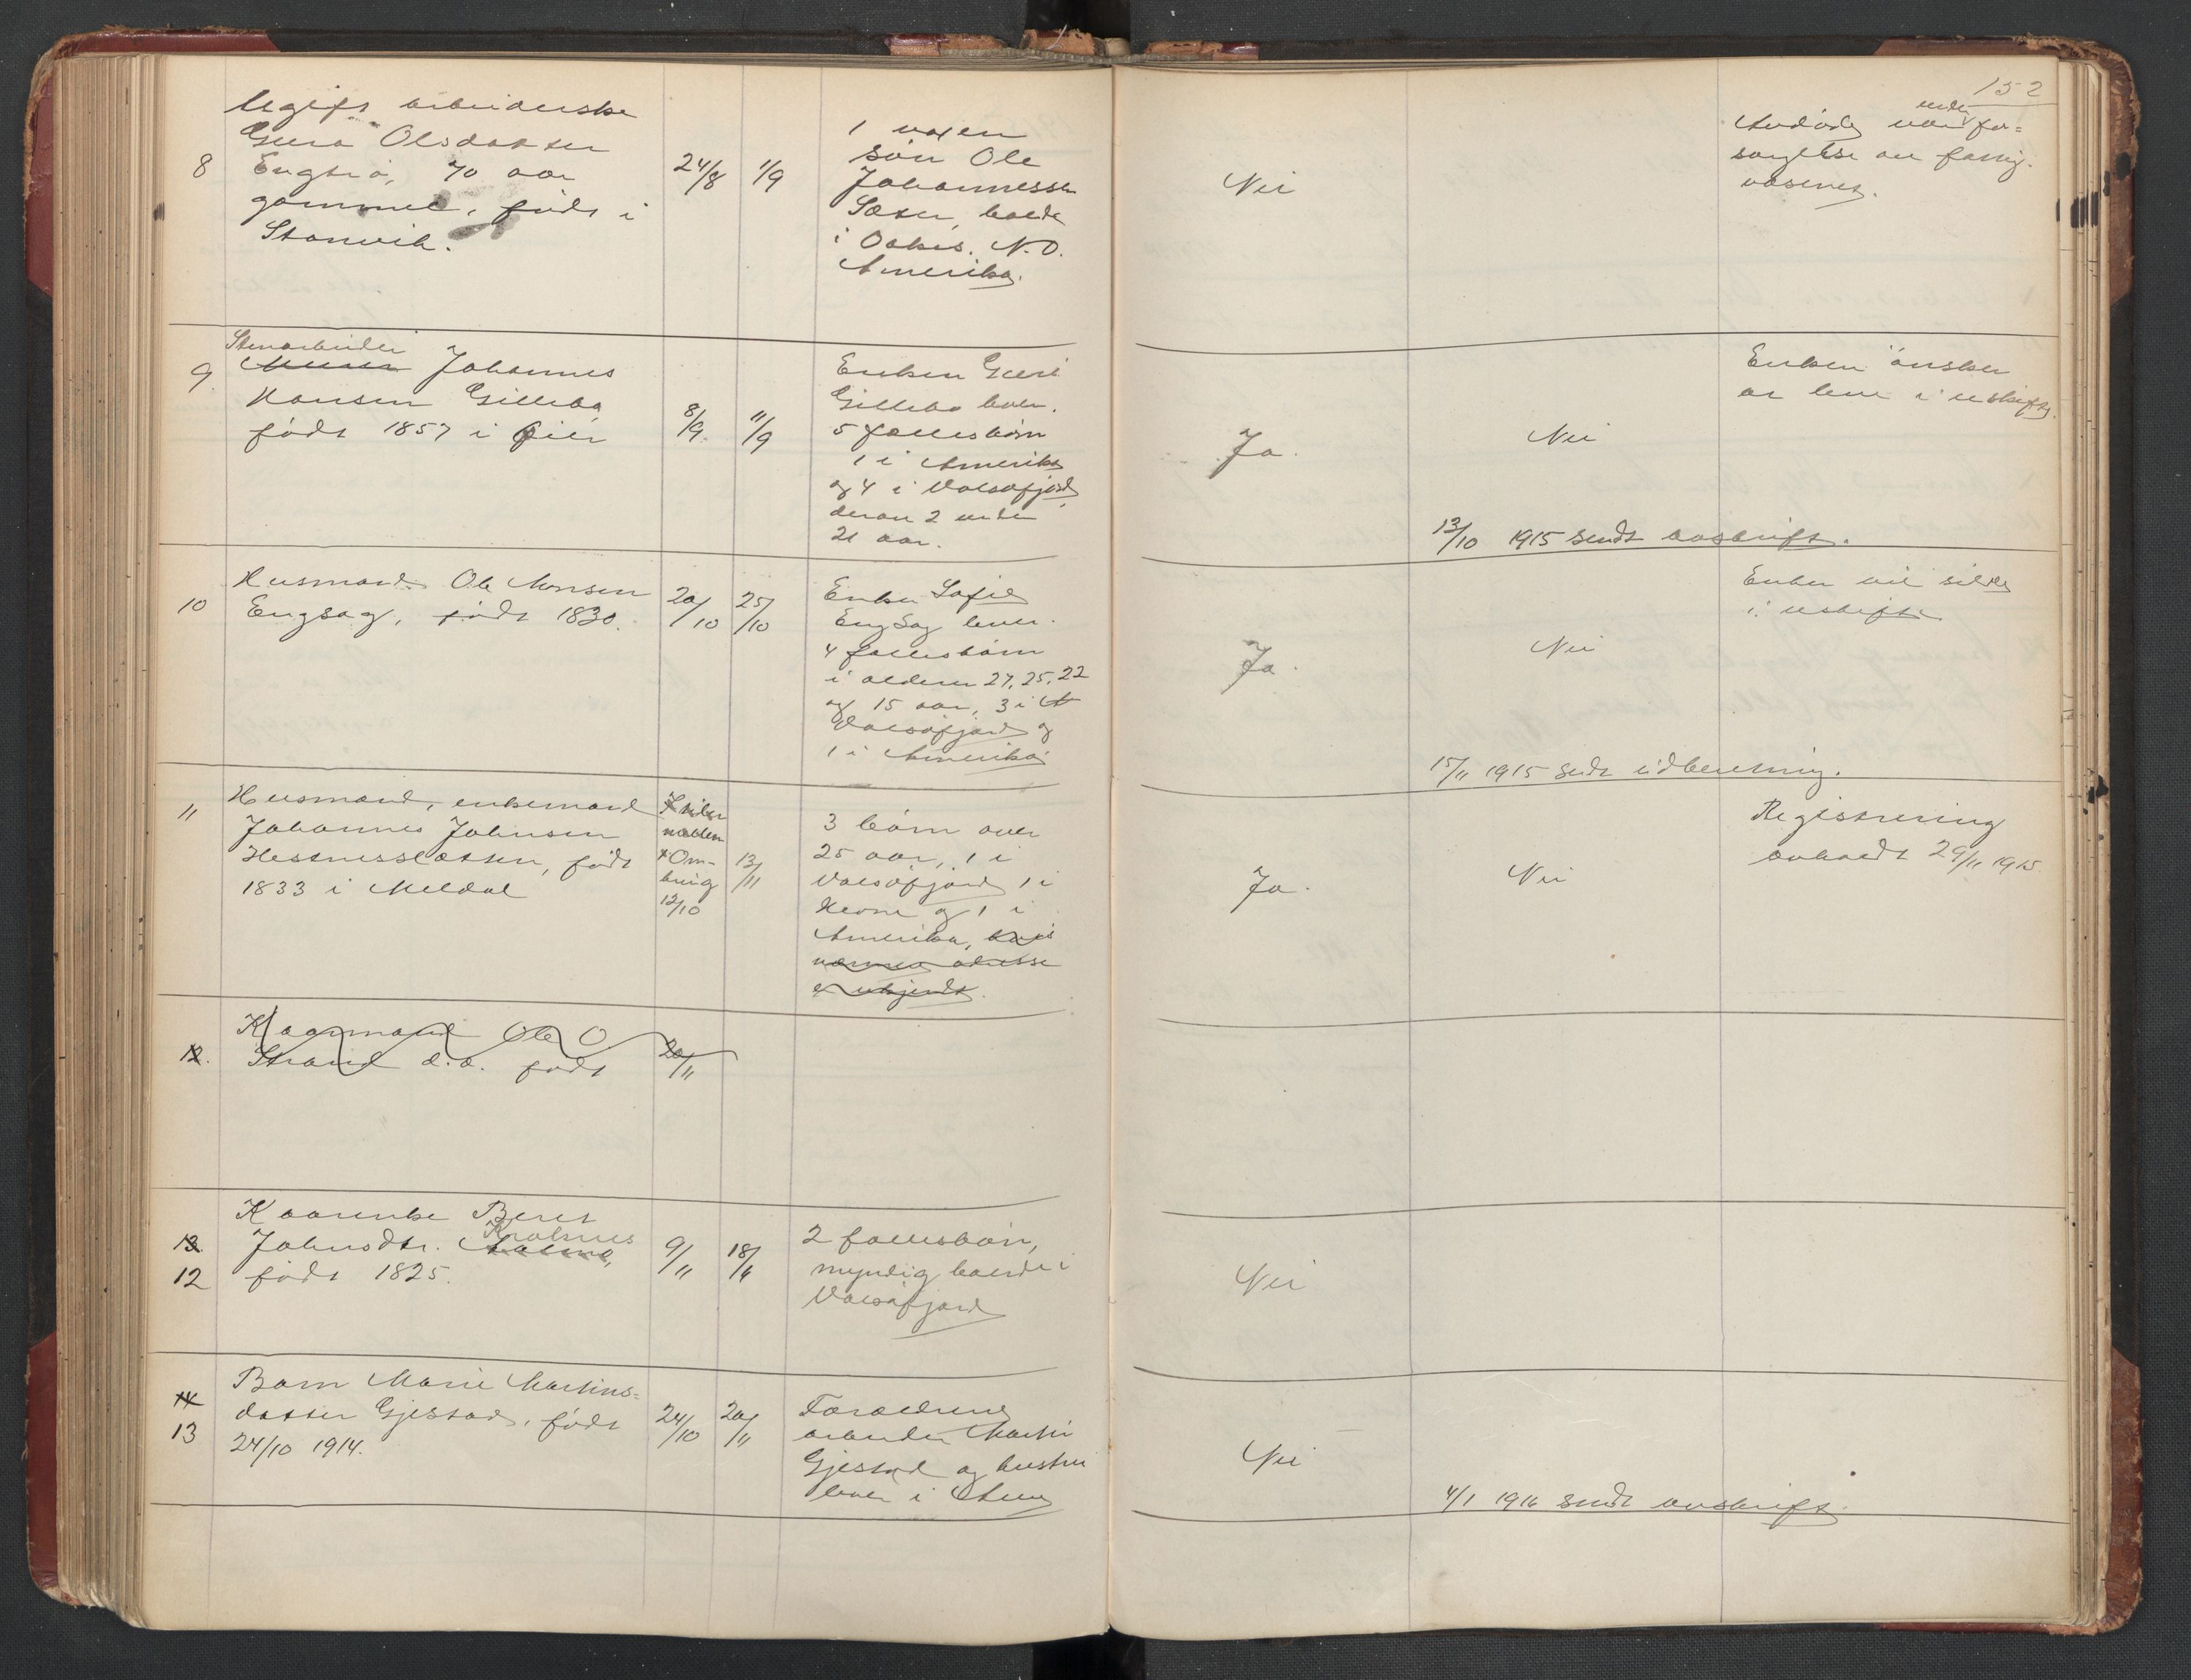 152
8
Ugift arbeiderske
Gura Olsdatter
Engtrø, 70 aar
gammel, født i
Stamvik.
24/8
1/9
1 voxen
søn Ole
Johannessen
Sæter, boende
i Oakes. N. D.
Amerika.
Nei
Avdøde var under for=
sørgelse av fattig-
væsenet.
9
Stenarbeider
Johannes
Hansen Gillebo
født 1857 i Øier
8/9.
11/9
Enken Guri
Gillebo lever.
5 fællesbørn
1 i Amerika
og 4 i Valsøfjord,
derav 2 under
21 aar.
Ja.
Nei
Enken ønsker
at leve i uskifte.
13/10 1915 sendt avskrift.
10
Husmand Ole Monsen
Engsag, født 1830.
20/10
25/10
Enke Sofie
EngSag lever.
4 fællesbørn
i alderen 27, 25, 22
og 15 aar, 3 i
Valsøfjord og
1 i Amerika
Ja.
Nei
Enken vil sidde
i uskifte.
15/11 1915 sendt indberetning.
11
Husmand, enkemand
Johannes Johnsen
Hestnesslætten, født
1833 i Meldal
12/10
13/11
3 børn over
25 aar, 1 i
Valsøfjord 1 i
Hevne og 1 i
Amerika, hvis
nærmere adresse
er ukjendt.
Ja.
Nei
Registrering
avholdt 29/11 1915
12.
Kaarmand Ole O.
Strand d.æ. født
20/11
13.
12
Kaarenke Beret
Johnsdtr.
født 1825.
9/11
18/11
2 fællesbørn,
myndig boende i
Valsøfjord
Nei
14
13
Barn Marie Martins=
datter Gjestad, født
24/10 1914.
24/10
20/11
Forældrene
arbeider Martin
Gjestad og hustru
lever i Aure
Nei
4/1 1916 sendt avskrift.